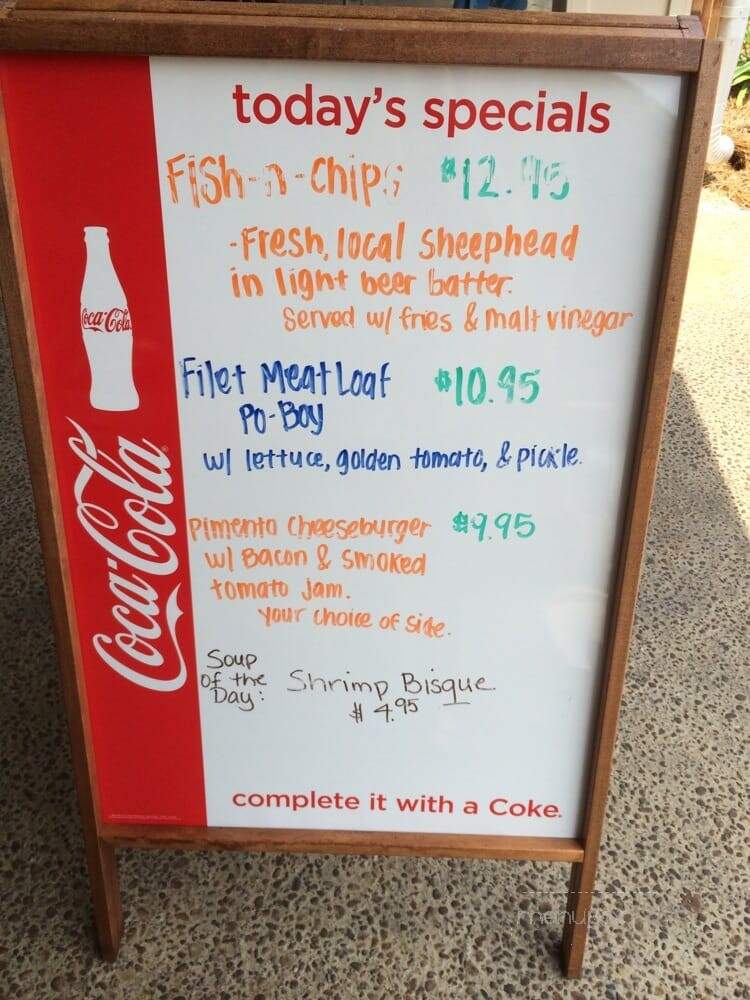 today's specials
Fish-n-Chips $12.95
-Fresh, local Sheephead
in light beer batter.
Served w/ fries & malt vinegar
Coca-Cola
Filet Meat Loaf $10.95
Po-Boy
w/ lettuce, golden tomato, & pickle.
Pimento Cheeseburger $9.95
w/ Bacon & Smoked
tomato jam.
your choice of side.
Coca-Cola
Soup
of the
Day:
Shrimp Bisque
$ 4.95
complete it with a Coke.